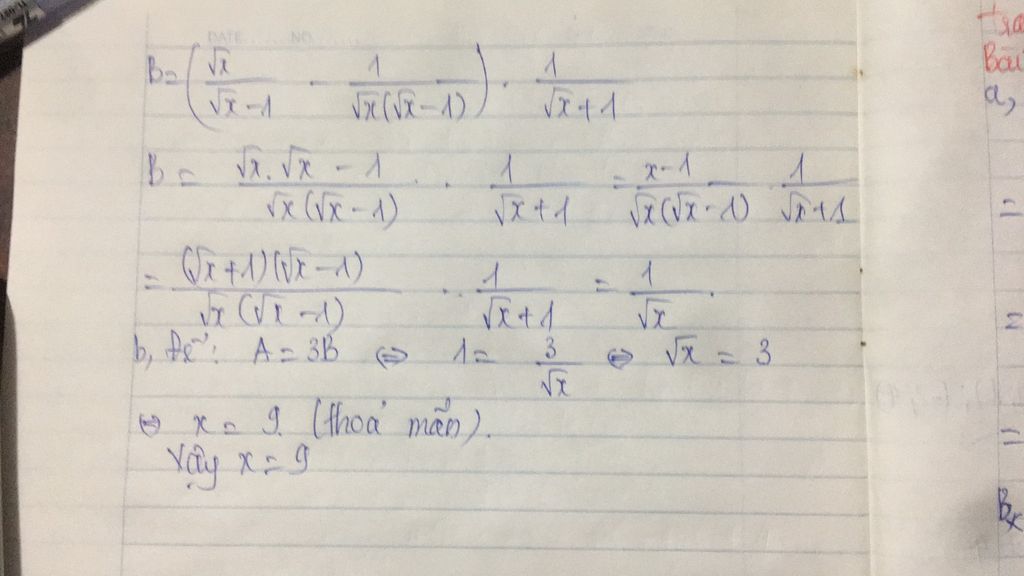 DATE NO
B = ( √x / (√x - 1) - 1 / (√x(√x - 1)) ) . 1 / (√x + 1)
B = (√x . √x - 1) / (√x(√x - 1)) . 1 / (√x + 1) = (x - 1) / (√x(√x - 1)) . 1 / (√x + 1)
= (√x + 1)(√x - 1) / (√x(√x - 1)) . 1 / (√x + 1) = 1 / √x .
b, Để : A = 3B ⇔ 1 = 3 / √x ⇔ √x = 3
⇔ x = 9. (thoả mãn).
Vậy x = 9
Bài
a,
=
=
=
Bx